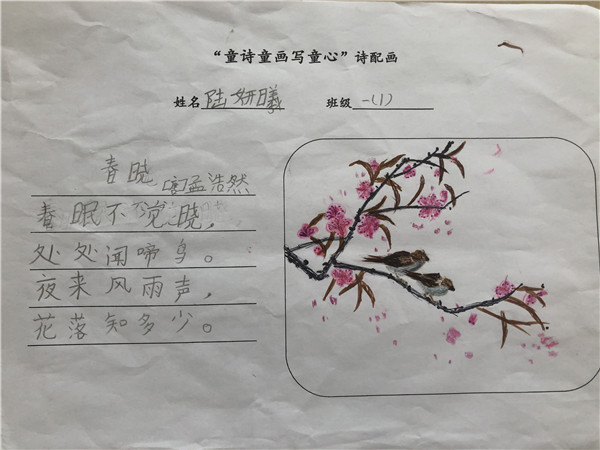 “童诗童画写童心”诗配画
姓名 陆妍曦 班级 一(1)
春晓 [唐]孟浩然
春眠不觉晓，
处处闻啼鸟。
夜来风雨声，
花落知多少。